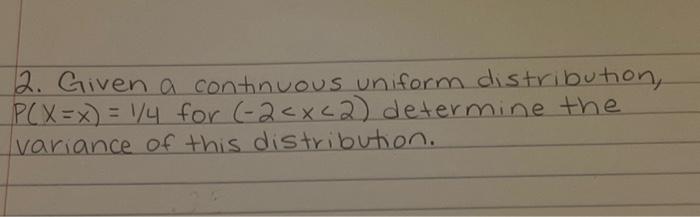 2. Given a continuous uniform distribution,
P(X=x) = 1/4 for (-2<x<2) determine the
variance of this distribution.